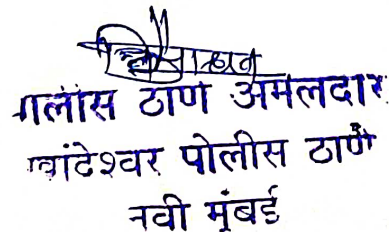 पोलीस ठाणे अमलदार
खांदेश्वर पोलीस ठाणे
नवी मुंबई